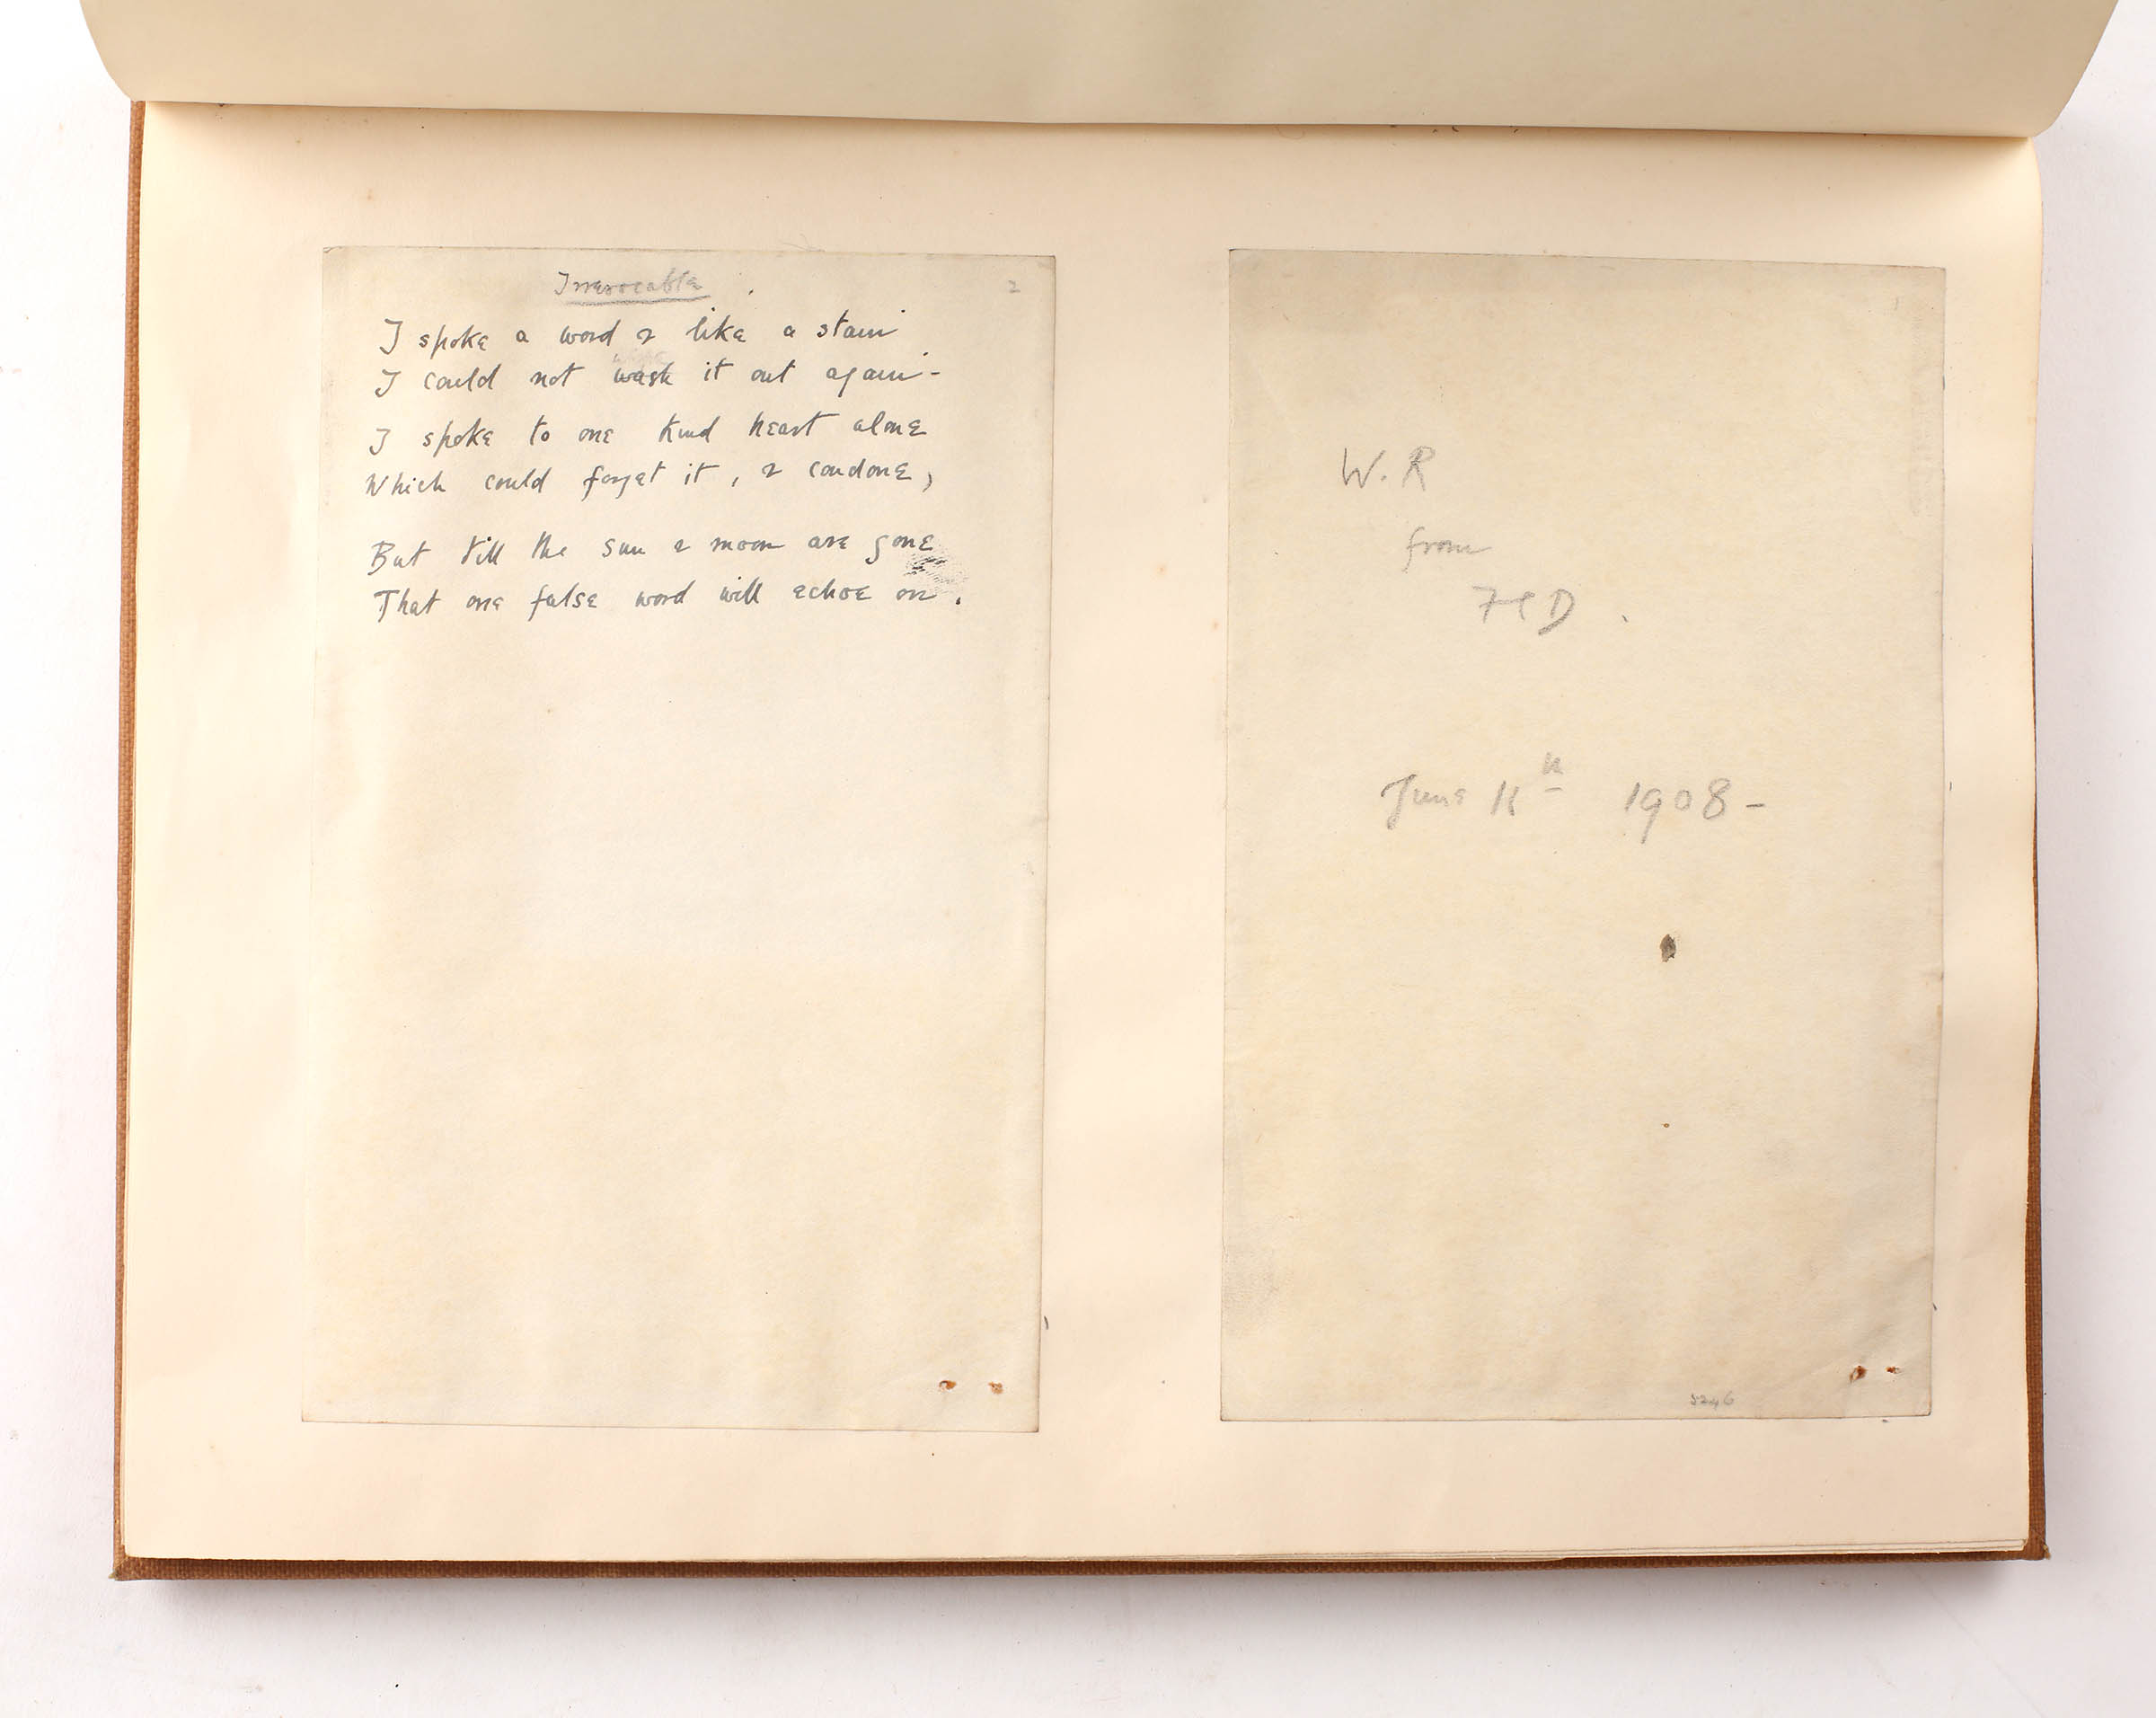 Irrevocable.
2
I spoke a word & like a stain
I could not wash it out again –
I spoke to one kind heart alone
Which could forget it, & condone,
But till the sun & moon are gone
That one false word will echoe on.
W. R
from
June 11th 1908 –
5246